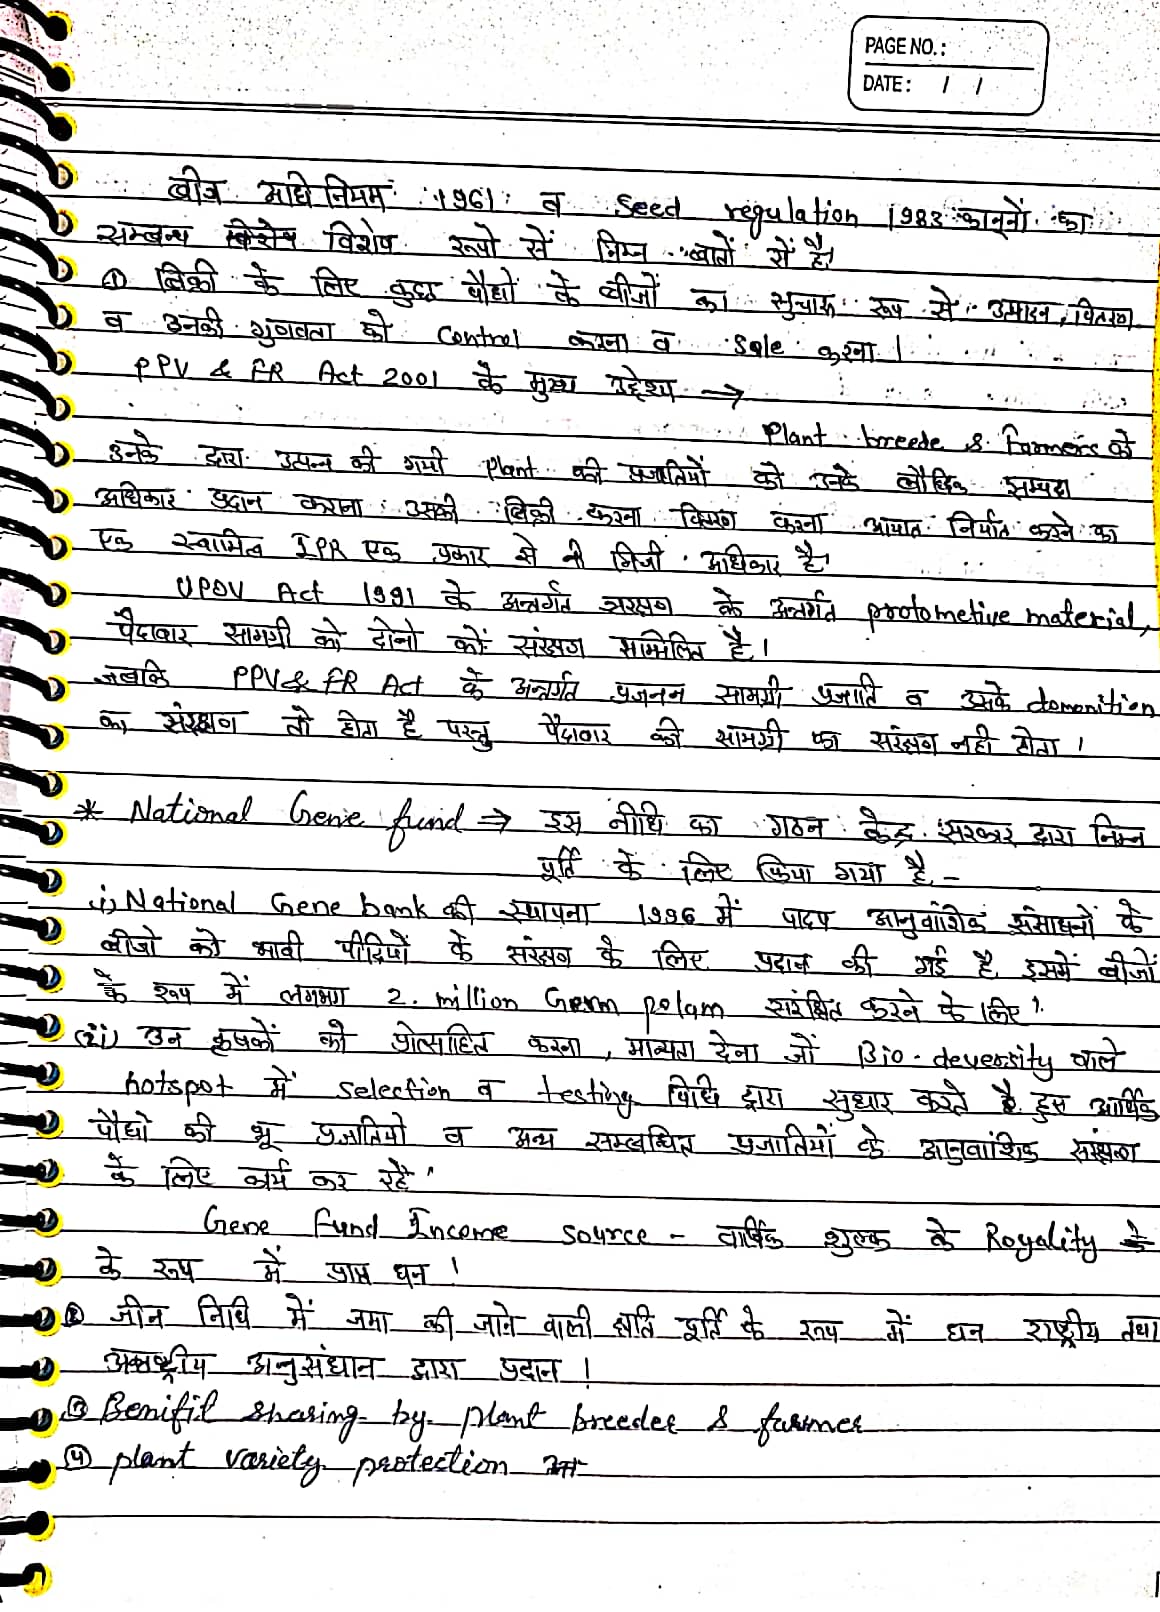 PAGE NO.:
DATE: / /
बीज अधिनियम 1961 व Seed regulation 1983 कानूनों का
सम्बन्ध विशेष रूपो सें निम्न बातों सें है।
① बिक्री के लिए कुछ पौधों के बीजों का सुचारू रूप से उत्पादन, वितरण
व उनकी गुणवता को Control करना व sale करना।
PPV & FR Act 2001 के मुख्य उद्देश्य →
Plant breede & Farmers को
उनके द्वारा उत्पन्न की गयी plant की प्रजातियों को उनके बौद्धिक सम्पदा
अधिकार प्रदान कराना उसकी बिक्री करना करना आयात निर्यात करने का
एक स्वामित्व IPR एक प्रकार से भी निजी अधिकार है।
UPOV Act 1991 के अन्तर्गत सरक्षण के अन्तर्गत protometive material,
पैदावार सामग्री को दोनो कों संरक्षण सम्मिलित है।
जबकि PPV& FR Act के अन्तर्गत प्रजनन सामग्री प्रजाति व उसके domonition
का संरक्षण तो होता है परन्तु पैदावार की सामग्री का सरंक्षण नही होता।
* National Gene fund → इस नीधि का गठन केन्द्र सरकार द्वारा निम्न
पूर्ति के लिए किया गया है -
i) National Gene bank की स्थापना 1996 में पादप आनुवांशिक संसाधनों के
बीजो को भावी पीढ़ियों के संरक्षण के लिए प्रदान की गई है इसमें बीजों
के रूप में लगभग 2. million Germ polam सरंक्षित करने के लिए।
(ii) उन कृषकों को प्रोत्साहित करना, मान्यता देना जों Bio-deversity वाले
hotspot में selection व testing विधि द्वारा सुधार करते है इस आर्थिक
पौधो की भू प्रजातियो व अन्य सम्बन्धित प्रजातियों के आनुवांशिक संरक्षण
के लिए कार्य कर रहे।
Gene Fund Income source - वार्षिक शुल्क के Royality के
के रूप में प्राप्त धन।
② जीन निधि में जमा की जाने वाली क्षति पूर्ति के रूप में धन राष्ट्रीय तथा
अनुसंधान द्वारा प्रदान।
③ Benifit sharing by plant breeder & farmer
④ plant variety protection